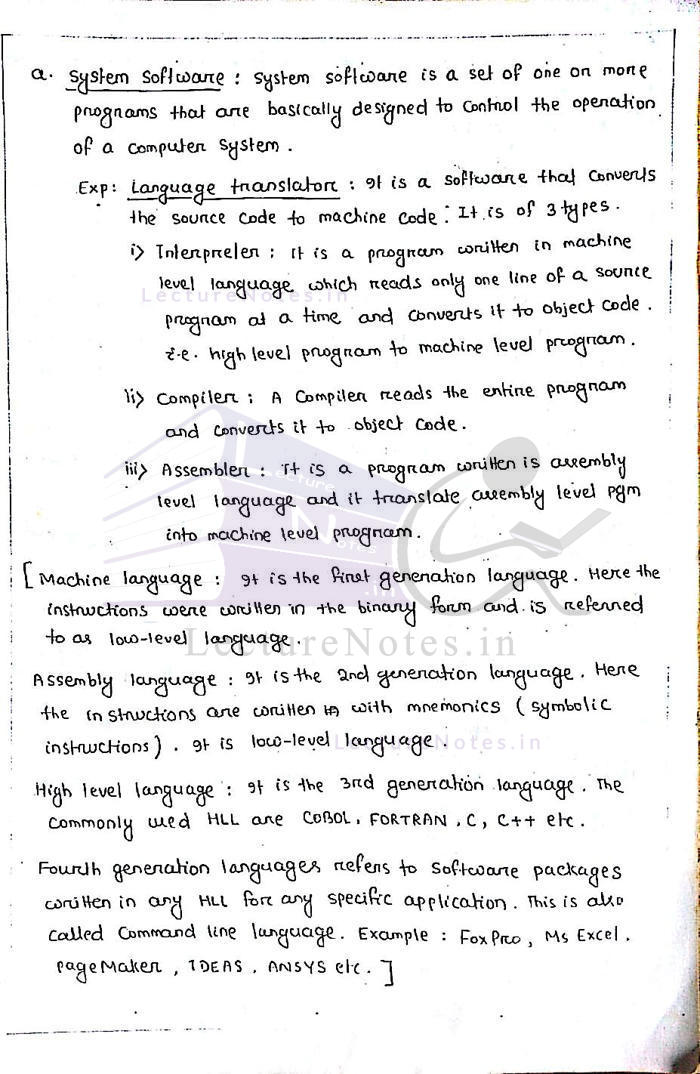 a. System Software : System software is a set of one or more
programs that are basically designed to control the operation
of a computer system.
Exp: Language translator : It is a software that converts
the source code to machine code. It is of 3 types.
i> Interpreter : It is a program written in machine
level language which reads only one line of a source
LectureNotes.in
program at a time and converts it to object code.
i.e. high level program to machine level program.
ii> Compiler : A Compiler reads the entire program
and converts it to object code.
iii> Assembler : It is a program written is assembly
Lecture
level language and it translate assembly level pgm
Notes
into machine level program.
.in
[ Machine language : It is the first generation language. Here the
instructions were written in the binary form and is referred
to as low-level language.
LectureNotes.in
Assembly language : It is the 2nd generation language. Here
the instructions are written with mnemonics ( symbolic
instructions ). It is low-level language.
LectureNotes.in
High level language : It is the 3rd generation language. The
commonly used HLL are COBOL, FORTRAN, C, C++ etc.
Fourth generation languages refers to software packages
written in any HLL for any specific application. This is also
called Command line language. Example : FoxPro, Ms Excel,
PageMaker, IDEAS, ANSYS etc. ]